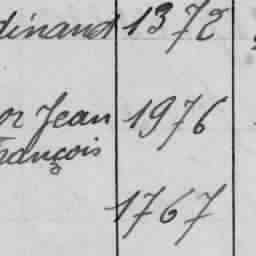 dinand 1372
or Jean 1976
François
1767